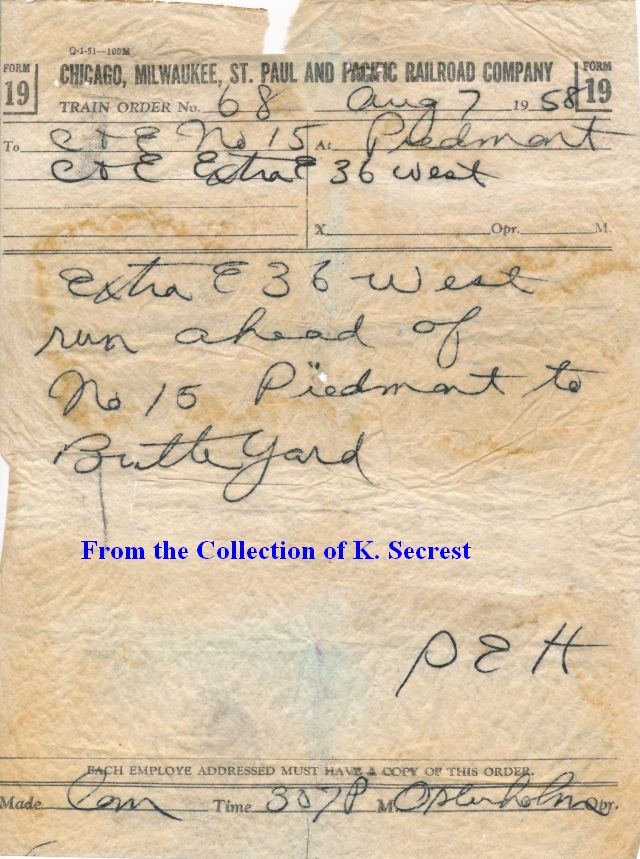 Q-1-51—100M
FORM 19 CHICAGO, MILWAUKEE, ST. PAUL AND PACIFIC RAILROAD COMPANY FORM 19
TRAIN ORDER No. 68 Aug 7 1958
To C & E No 15 At Piedmont
C & E Extra E 36 West
X Opr. M.
Extra E 36 West
run ahead of
No 15 Piedmont to
Butte Yard
From the Collection of K. Secrest
P E H
EACH EMPLOYE ADDRESSED MUST HAVE A COPY OF THIS ORDER.
Made Com Time 307 P M. Osterholm Opr.